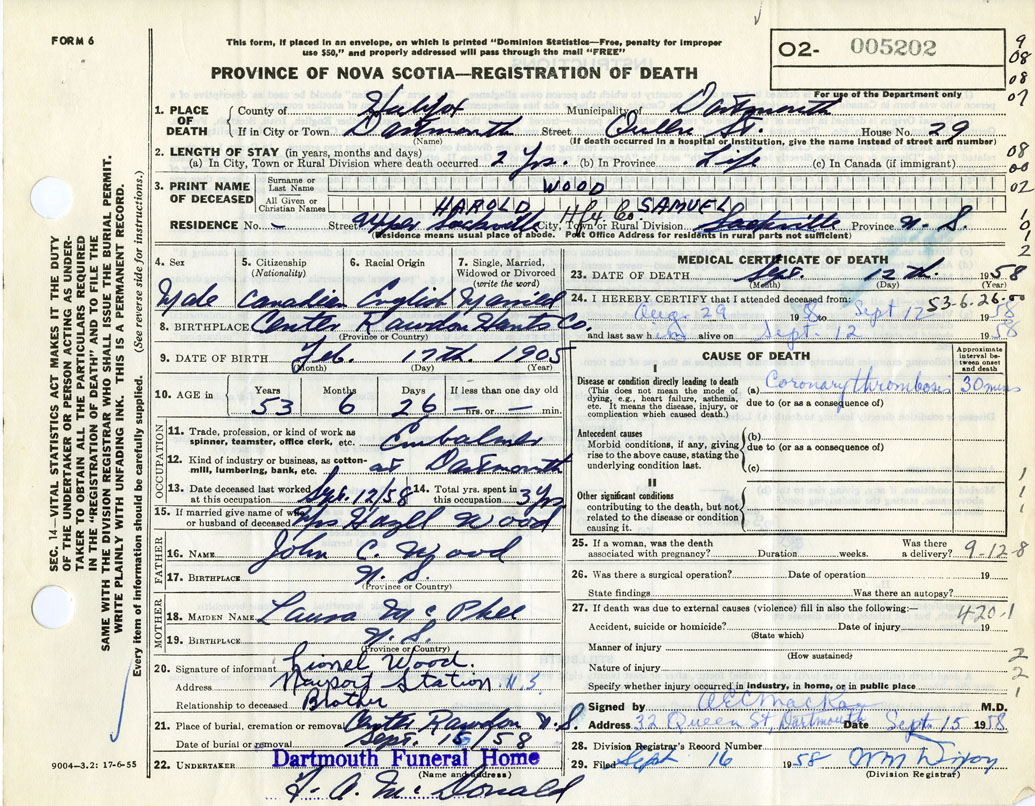 FORM 6
This form, if placed in an envelope, on which is printed "Dominion Statistics—Free, penalty for improper
use $50," and properly addressed will pass through the mail "FREE"
O2- 005202
PROVINCE OF NOVA SCOTIA—REGISTRATION OF DEATH
For use of the Department only
9
08
08
07
1. PLACE OF DEATH { County of Halifax Municipality of Dartmouth
If in City or Town Dartmouth Street Queen St. House No. 29
(Name) (If death occurred in a hospital or institution, give the name instead of street and number)
2. LENGTH OF STAY (in years, months and days)
(a) In City, Town or Rural Division where death occurred 2 Yrs. (b) In Province Life (c) In Canada (if immigrant)
08
00
02
3. PRINT NAME OF DECEASED { Surname or Last Name WOOD
All Given or Christian Names HAROLD SAMUEL
RESIDENCE No. – Street Upper Sackville Hfx Co. City, Town or Rural Division Sackville Province N. S.
(Residence means usual place of abode. Post Office Address for residents in rural parts not sufficient)
1
0
1
2
4. Sex 5. Citizenship (Nationality) 6. Racial Origin 7. Single, Married, Widowed or Divorced (write the word)
Male Canadian English Married
8. BIRTHPLACE Center Rawdon Hants Co.
(Province or Country)
9. DATE OF BIRTH Feb. 17th. 1905
(Month) (Day) (Year)
10. AGE in Years Months Days If less than one day old
53 6 26 — hrs. or — min.
OCCUPATION
11. Trade, profession or kind of work as spinner, teamster, office clerk, etc. Embalmer
12. Kind of industry or business, as cotton-mill, lumbering, bank, etc. at Dartmouth
13. Date deceased last worked at this occupation Sept. 12/58 14. Total yrs. spent in this occupation 3 yrs
15. If married give name of wife or husband of deceased Mrs Hazel Wood
FATHER
16. NAME John C. Wood
17. BIRTHPLACE N. S.
(Province or Country)
MOTHER
18. MAIDEN NAME Laura Mc Phee
19. BIRTHPLACE N. S.
(Province or Country)
20. Signature of informant Lionel Wood.
Address Station. N.S.
Relationship to deceased Brother
21. Place of burial, cremation or removal Center Rawdon N. S.
Date of burial or removal Sept. 15/58
22. UNDERTAKER Dartmouth Funeral Home
(Name and address)
F. A. McDonald
MEDICAL CERTIFICATE OF DEATH
23. DATE OF DEATH Sept. 12th. 1958
(Month) (Day) (Year)
24. I HEREBY CERTIFY that I attended deceased from: 53-6-26-00
Aug. 29 1958 to Sept 12 1958
and last saw him alive on Sept. 12 1958
CAUSE OF DEATH
Approximate interval between onset and death
I
Disease or condition directly leading to death
(This does not mean the mode of dying, e.g., heart failure, asthenia, etc. It means the disease, injury, or complication which caused death.)
(a) Coronary thrombosis 30 mins
due to (or as a consequence of)
Antecedent causes
Morbid conditions, if any, giving rise to the above cause, stating the underlying condition last.
(b)
due to (or as a consequence of)
(c)
II
Other significant conditions contributing to the death, but not related to the disease or condition causing it.
1
1
1
25. If a woman, was the death associated with pregnancy? Duration weeks. Was there a delivery? 9-12-8
26. Was there a surgical operation? Date of operation 19
State findings Was there an autopsy?
27. If death was due to external causes (violence) fill in also the following:—
420-1
Accident, suicide or homicide? Date of injury 19
(State which)
Manner of injury
(How sustained)
Nature of injury
Specify whether injury occurred in industry, in home, or in public place
2
2
1
Signed by A E C MacKay M.D.
Address 32 Queen St, Dartmouth Date Sept. 15 1958
28. Division Registrar's Record Number
29. Filed Sept 16 1958 Wm Dixon
(Division Registrar)
SEC. 14—VITAL STATISTICS ACT MAKES IT THE DUTY
OF THE UNDERTAKER OR PERSON ACTING AS UNDER-
TAKER TO OBTAIN ALL THE PARTICULARS REQUIRED
IN THE "REGISTRATION OF DEATH" AND TO FILE THE
SAME WITH THE DIVISION REGISTRAR WHO SHALL ISSUE THE BURIAL PERMIT.
WRITE PLAINLY WITH UNFADING INK. THIS IS A PERMANENT RECORD.
Every item of information should be carefully supplied. (See reverse side for instructions.)
9004—3.2: 17-6-55